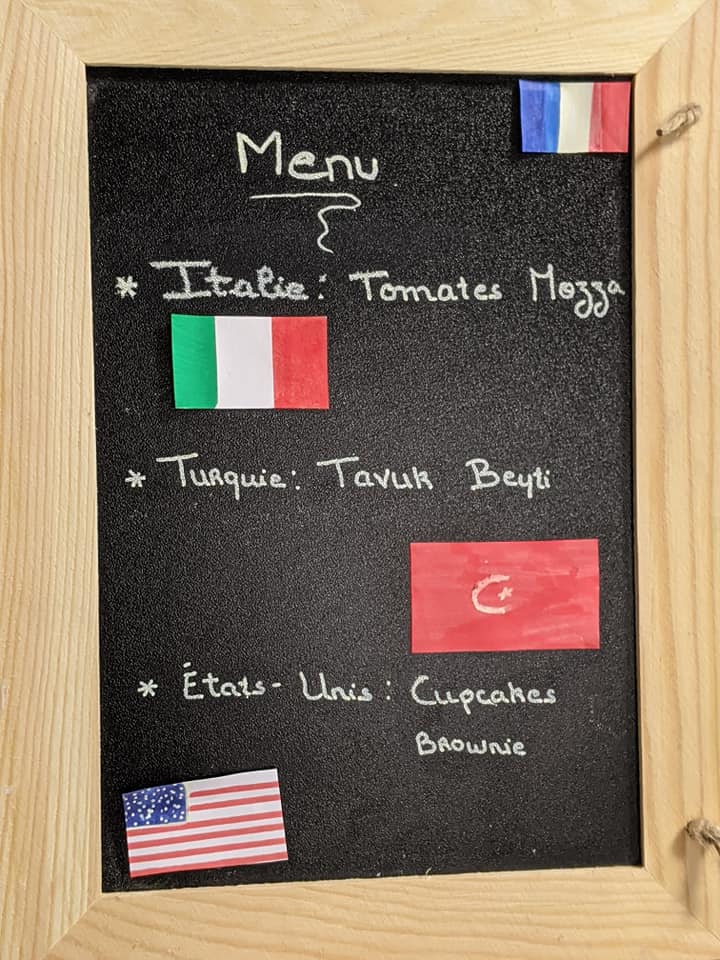 Menu
* Italie : Tomates Mozza
* Turquie : Tavuk Beyti
* États-Unis : Cupcakes
Brownie